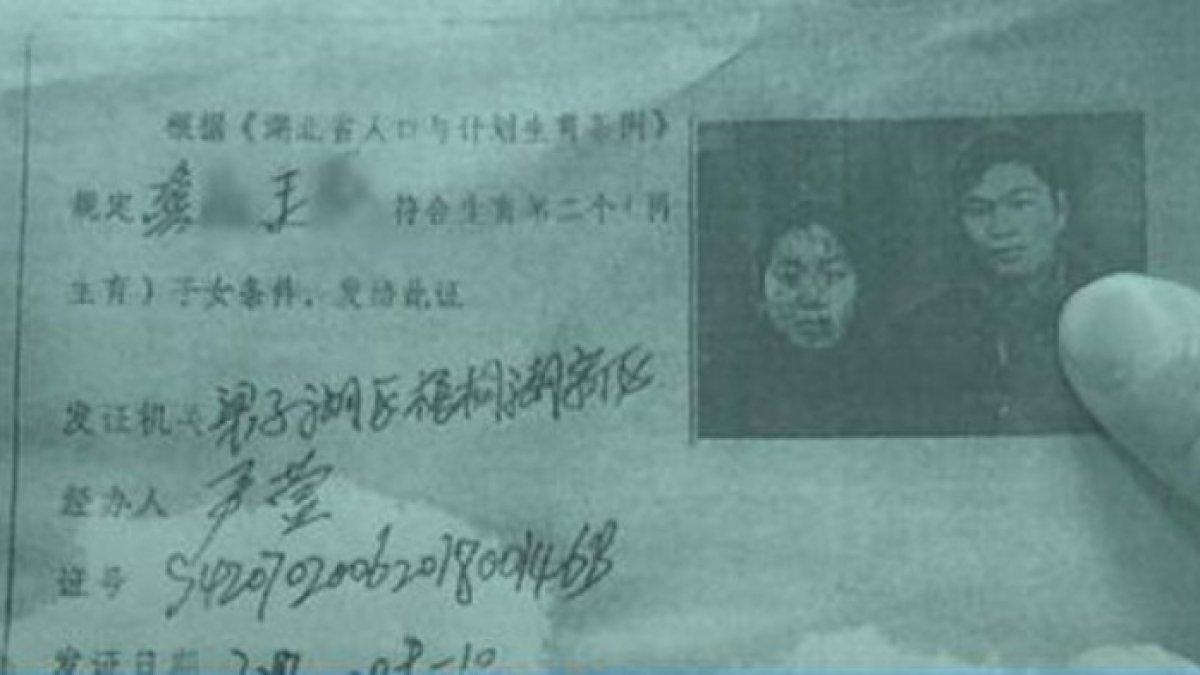 根据《湖北省人口与计划生育条例》
规定 龚 王 符合生育第二个（再
生育）子女条件，发给此证
发证机关 梁子湖区梧桐湖新区
经办人 尹莹
证号 S420702006201800146B
发证日期 -10